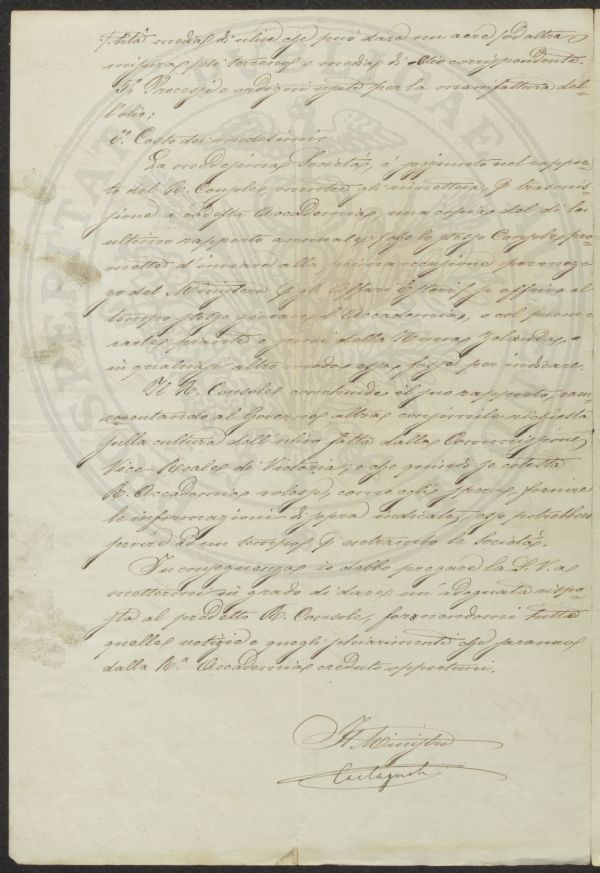 tità media di ulive che può dare un acre (od altra
misura) di terreno e media di olio corrispondente.
5.° Processi e ordigni usati per la manifattura del-
l'olio;
6.° Costo dei medesimi.
La medesima Società, è soggiunto nel rappor-
to del R. Console, mentre gli rimetteva, per trasmis-
sione a codesta Accademia, una copia del di lei
ultimo rapporto annuale (che lo stesso Console pro-
mette d'inviare alla prima occasione per mez-
zo del Ministero per gli Affari Esteri) si offriva al
tempo stesso giovare l'Accademia, o col procu-
rarle piante e semi della Nuova Zelanda, o
in qualsiasi altro modo essa fosse per indicare.
Il R. Console conchiude il suo rapporto, ram-
mentando al Governo altra consimile richiesta
sulla cultura dell'ulivo fatta dalla Commissione
Vice-Reale di Victoria, e che quindi se cotesta
R. Accademia volesse, come egli spera, fornire
le informazioni di sopra indicate, esse potrebbero
servire ad un tempo per entrambe le Società.
In conseguenza io debbo pregare la S.V. a
mettermi in grado di dare un'adeguata rispo-
sta al predetto R. Console, fornendomi tutte
quelle notizie e quegli schiarimenti che saranno
dalla R.ª Accademia creduti opportuni.
Il Ministro
Castagnola
PUBLICAE
PROSPERITATI